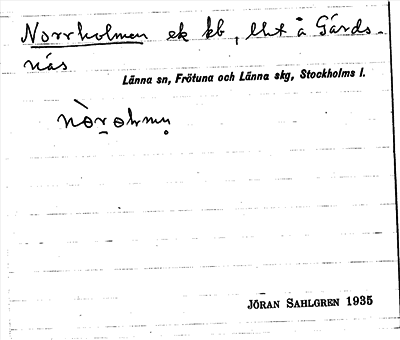 Norrholmen ek kb, lht å Gårds-
näs
Länna sn, Frötuna och Länna skg, Stockholms l.
JÖRAN SAHLGREN 1935